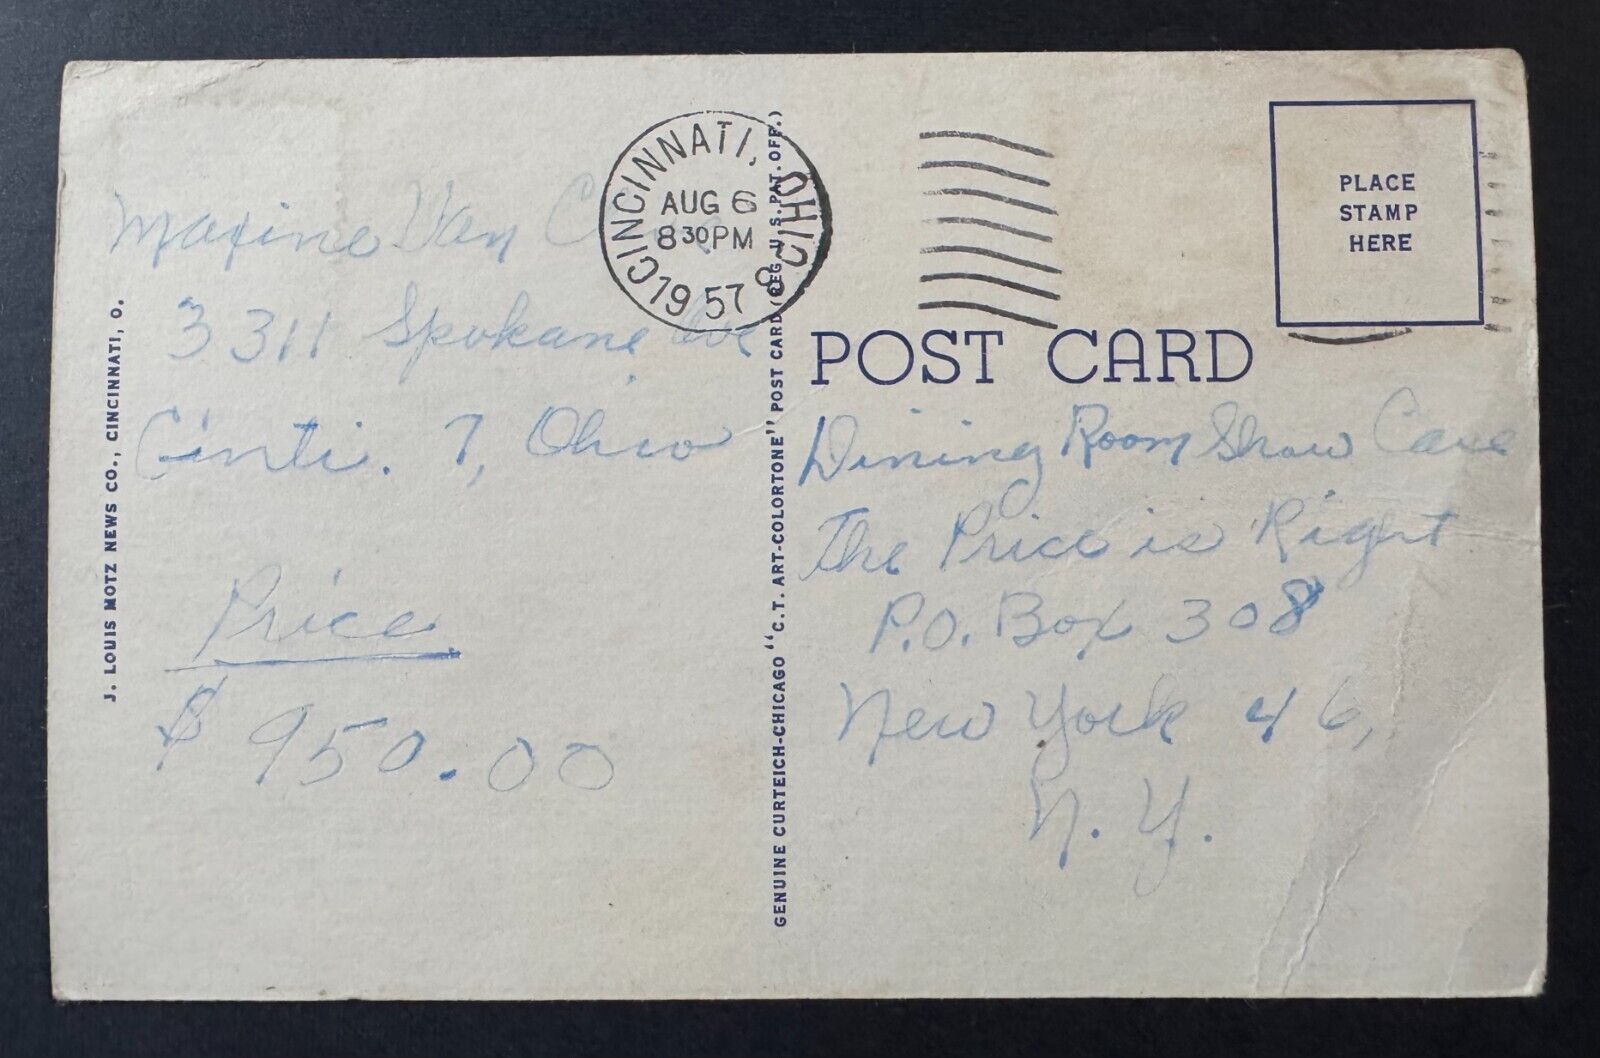 J. LOUIS MOTZ NEWS CO., CINCINNATI, O.
Maxine Van
3311 Spokane Ave
Cinti. 7, Ohio
Price
$950.00
CINCINNATI, OHIO
AUG 6
8 30 PM
1957
GENUINE CURTEICH-CHICAGO "C.T. ART-COLORTONE" POST CARD (REG. U.S. PAT. OFF.)
PLACE
STAMP
HERE
POST CARD
Dining Room Show Case
The Price is Right
P.O. Box 308
New York 46,
N.Y.